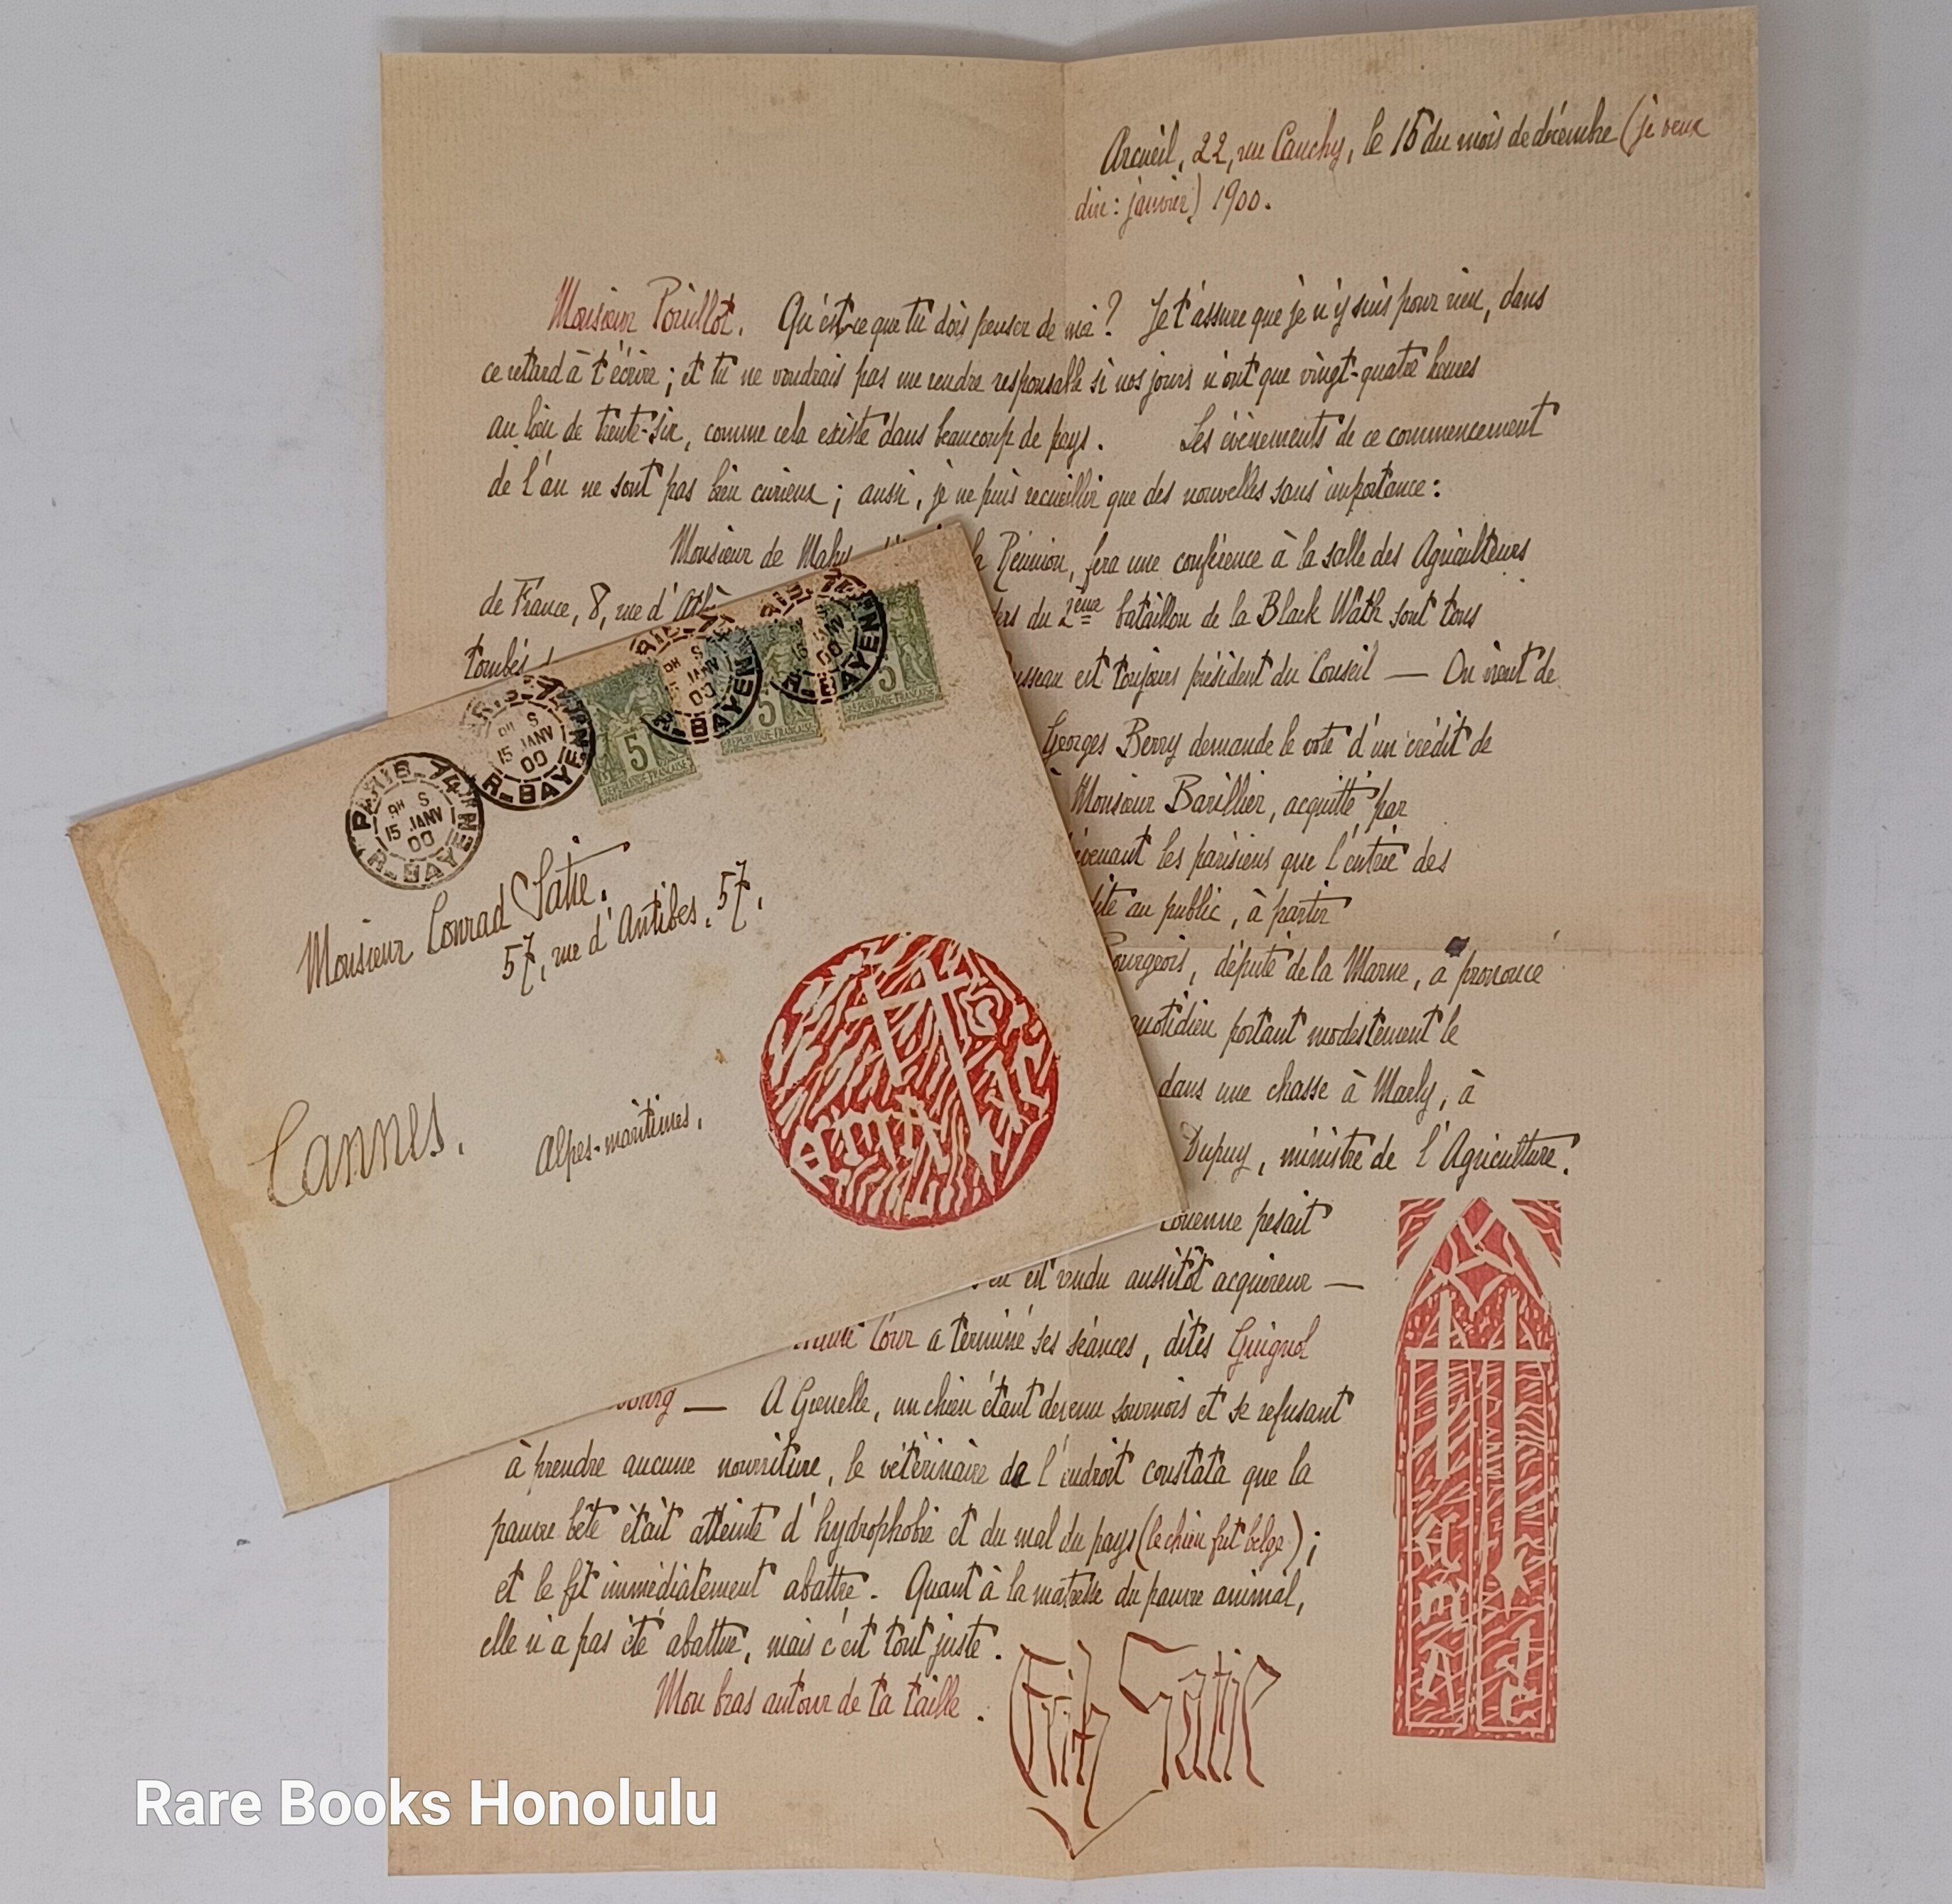 Arcueil, 22, rue Cauchy, le 15 du mois de décembre (je veux
dire : janvier) 1900.
Monsieur Pouillot. Qu'est-ce que tu dois penser de moi ? Je t'assure que je n'y suis pour rien, dans
ce retard à t'écrire ; et tu ne voudrais pas me rendre responsable si nos jours n'ont que vingt-quatre heures
au lieu de trente-six, comme cela existe dans beaucoup de pays. Les évènements de ce commencement
de l'an ne sont pas bien curieux ; aussi, je ne puis recueillir que des nouvelles sans importance :
Monsieur de Mahy, la Réunion, fera une conférence à la salle des Agriculteurs
de France, 8, rue d'Ath du 2ème bataillon de la Black Wath sont tous
tombés est toujours président du Conseil — On vient de
Georges Berry demande le vote d'un crédit de
Monsieur Barillier, acquitté par
les parisiens que l'entrée des
au public, à partir
Bourgeois, député de la Marne, a prononcé
quotidien portant modestement le
dans une chasse à Marly, à
Dupuy, ministre de l'Agriculture.
couenne pesait
est vendu aussitôt acquéreur —
Cour a terminé ses séances, dites Guignol
bourg — A Grenelle, un chien étant devenu sournois et se refusant
à prendre aucune nourriture, le vétérinaire de l'endroit constata que la
pauvre bête était atteinte d'hydrophobie et du mal du pays (le chien fut belge) ;
et le fit immédiatement abattre. Quant à la maîtresse du pauvre animal,
elle n'a pas été abattue, mais c'est tout juste.
Mon bras autour de ta taille.
Erik Satie
PARIS_74
9H S
15 JANV
00
R_BAYEN
9H S
15 JANV
00
R_BAYEN
9H S
15 JANV
00
R_BAYEN
R_BAYEN
5
REPUBLIQUE FRANÇAISE
5
REPUBLIQUE FRANÇAISE
5
REPUBLIQUE FRANÇAISE
Monsieur Conrad Satie.
57, rue d'Antibes, 57.
Cannes.
Alpes-maritimes.
Rare Books Honolulu